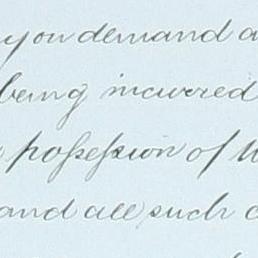 you demand a
being incurred
poſseſsion of
and all such